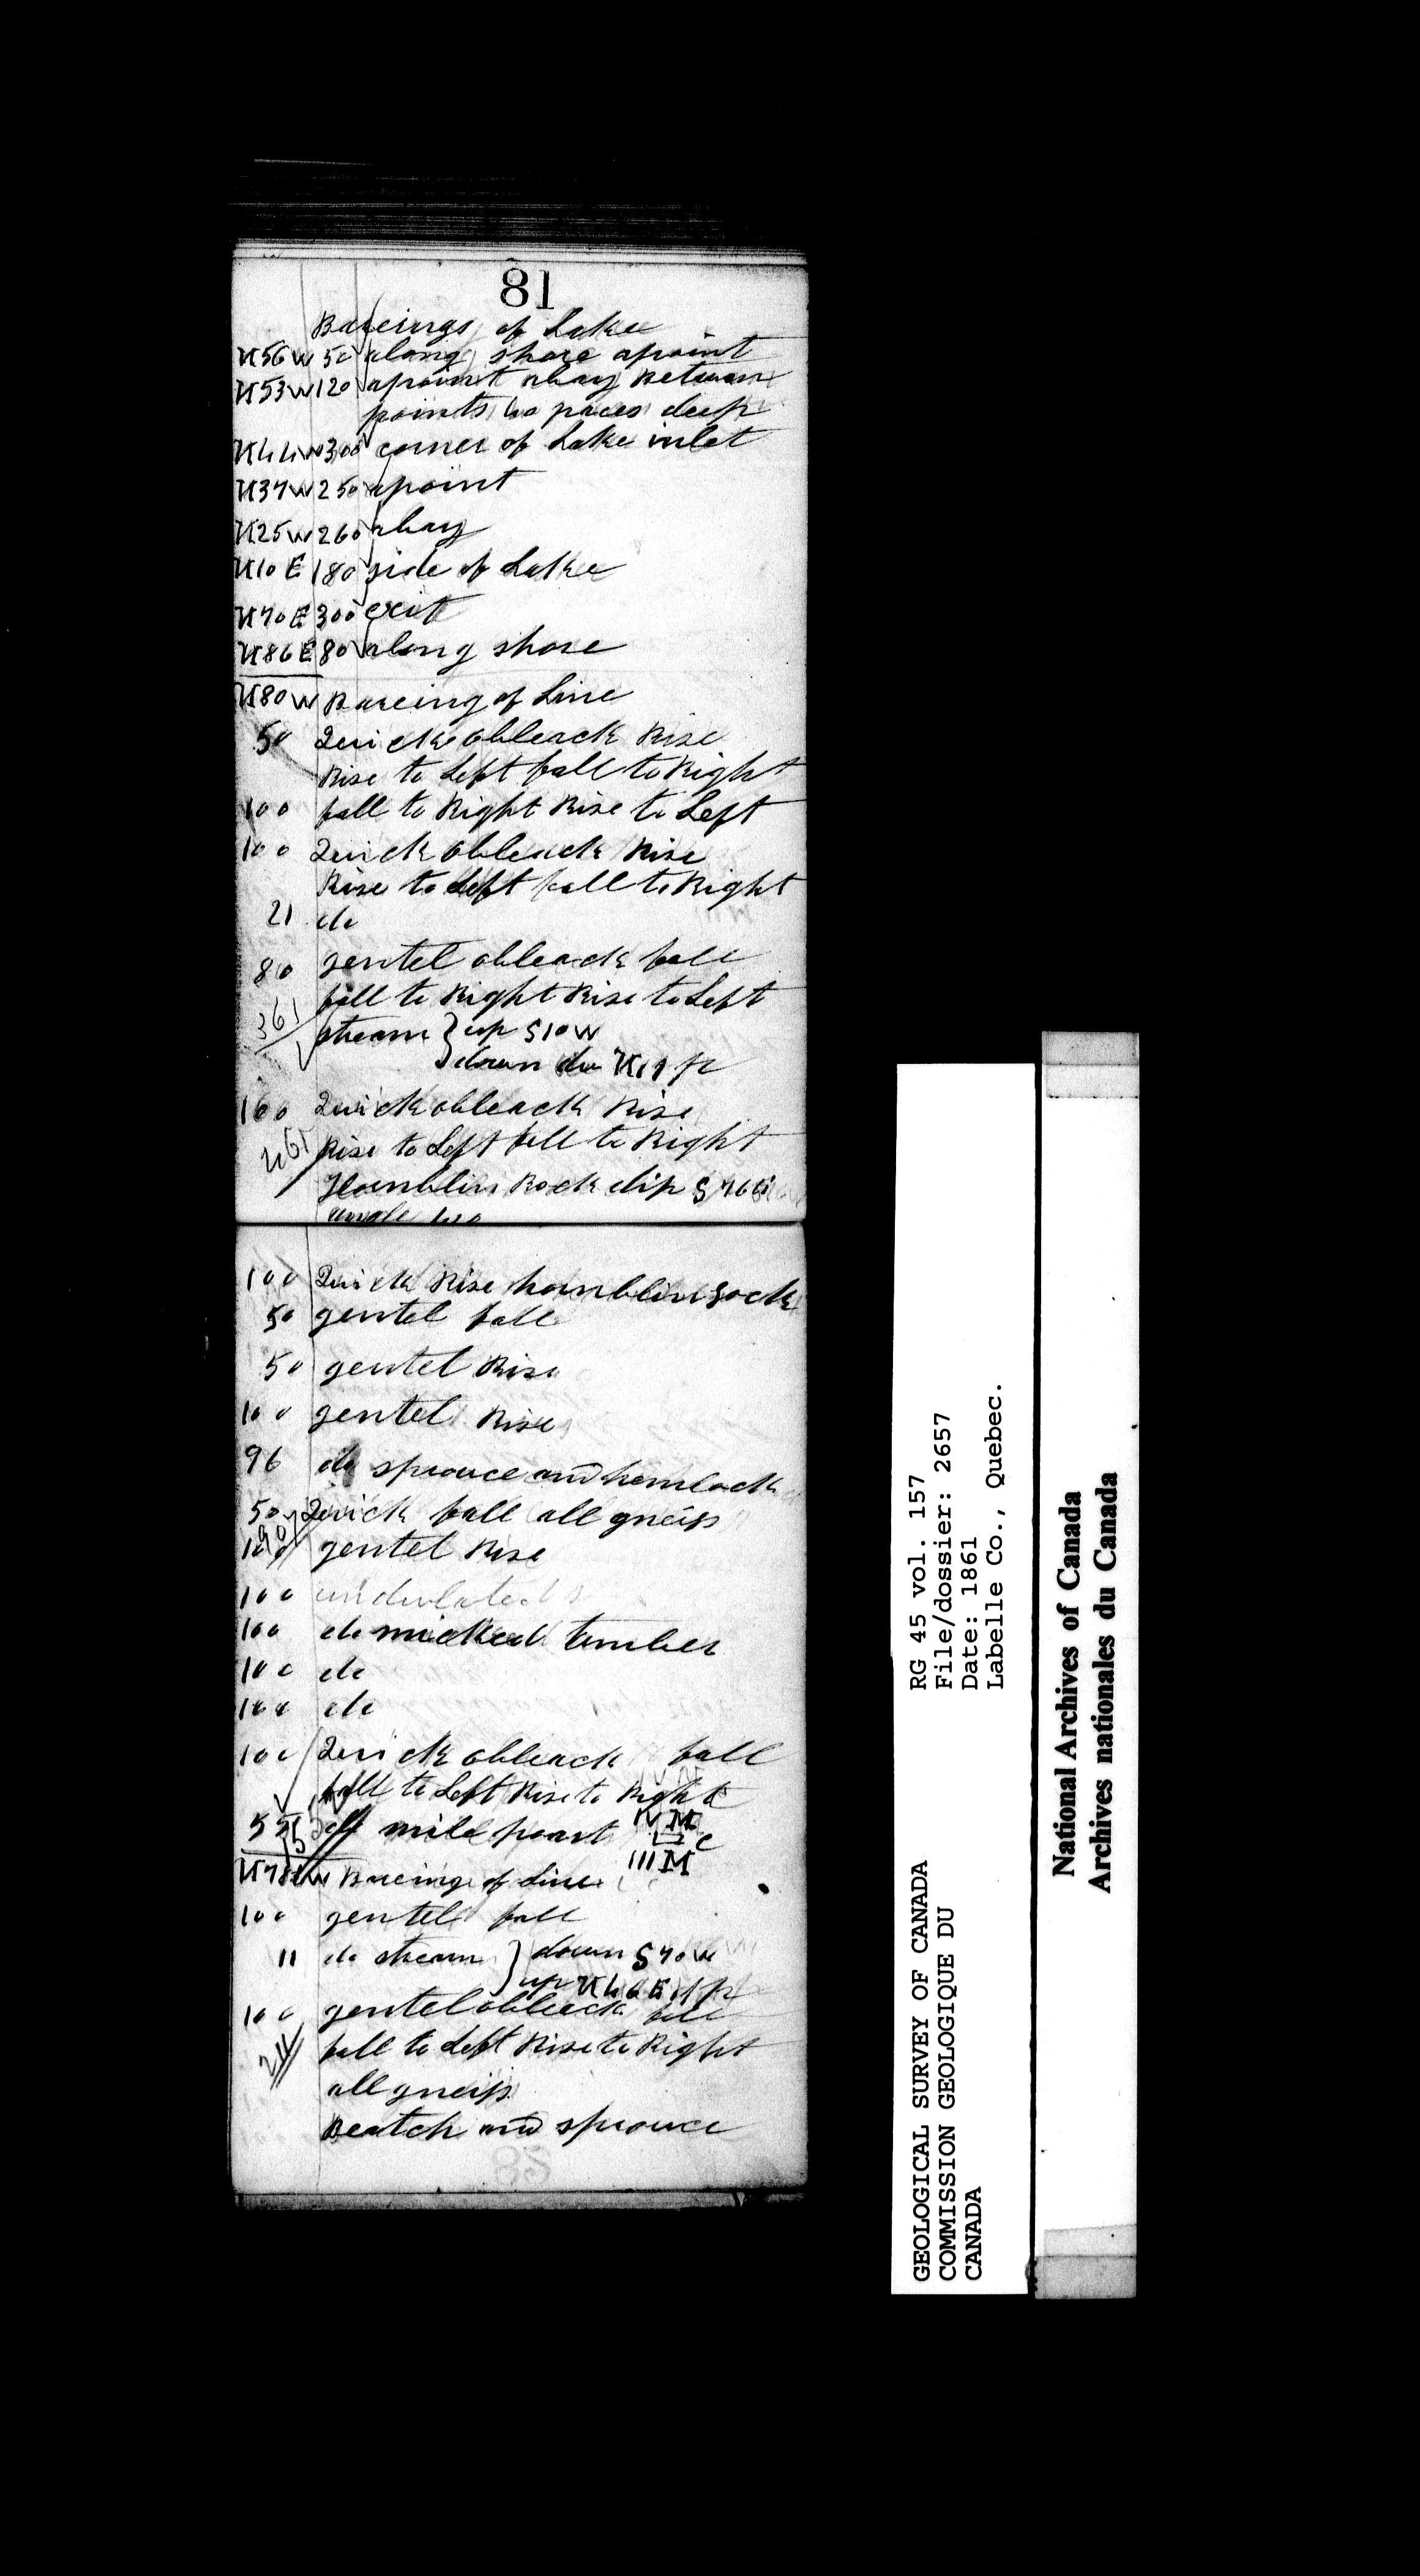 81
Bareings of Lake
N56W 50 along shore apoint
N53W 120 apoint abay Between
points 40 paces deep
N44W 300 corner of Lake inlet
N37W 250 apoint
N25W 260 abay
N10E 180 side of Lake
N70E 300 exit
N86E 80 along shore
N80W Bareing of Line
50 Quick obleack Rise
Rise to Left fall to Right
100 fall to Right Rise to Left
100 Quick obleack Rise
Rise to Left fall to Right
21 do
80 gentel obleack fall
fall to Right Rise to Left
361 stream } up S10W
down do N
100 Quick obleack Rise
461 Rise to Left fall to Right
Hornblin Rock dip
angle 40
100 Quick Rise hornblin Rock
50 gentel fall
50 gentel Rise
100 gentel Rise
96 do sprouce and hemlock
50 Quick fall all gneiss
100 gentel Rise
100 undulated
100 do micked timber
100 do
100 do
100 Quick obleack fall
fall to Left Rise to Right
55 mile poast IV M
III M
Bareing of Line
100 gentel fall
11 do stream } down S70W
up N46E
100 gentel obleack fall
211 fall to Left Rise to Right
all gneiss
Beatch and sprouce
GEOLOGICAL SURVEY OF CANADA
COMMISSION GEOLOGIQUE DU
CANADA
RG 45 vol. 157
File/dossier: 2657
Date: 1861
Labelle Co., Quebec.
National Archives of Canada
Archives nationales du Canada